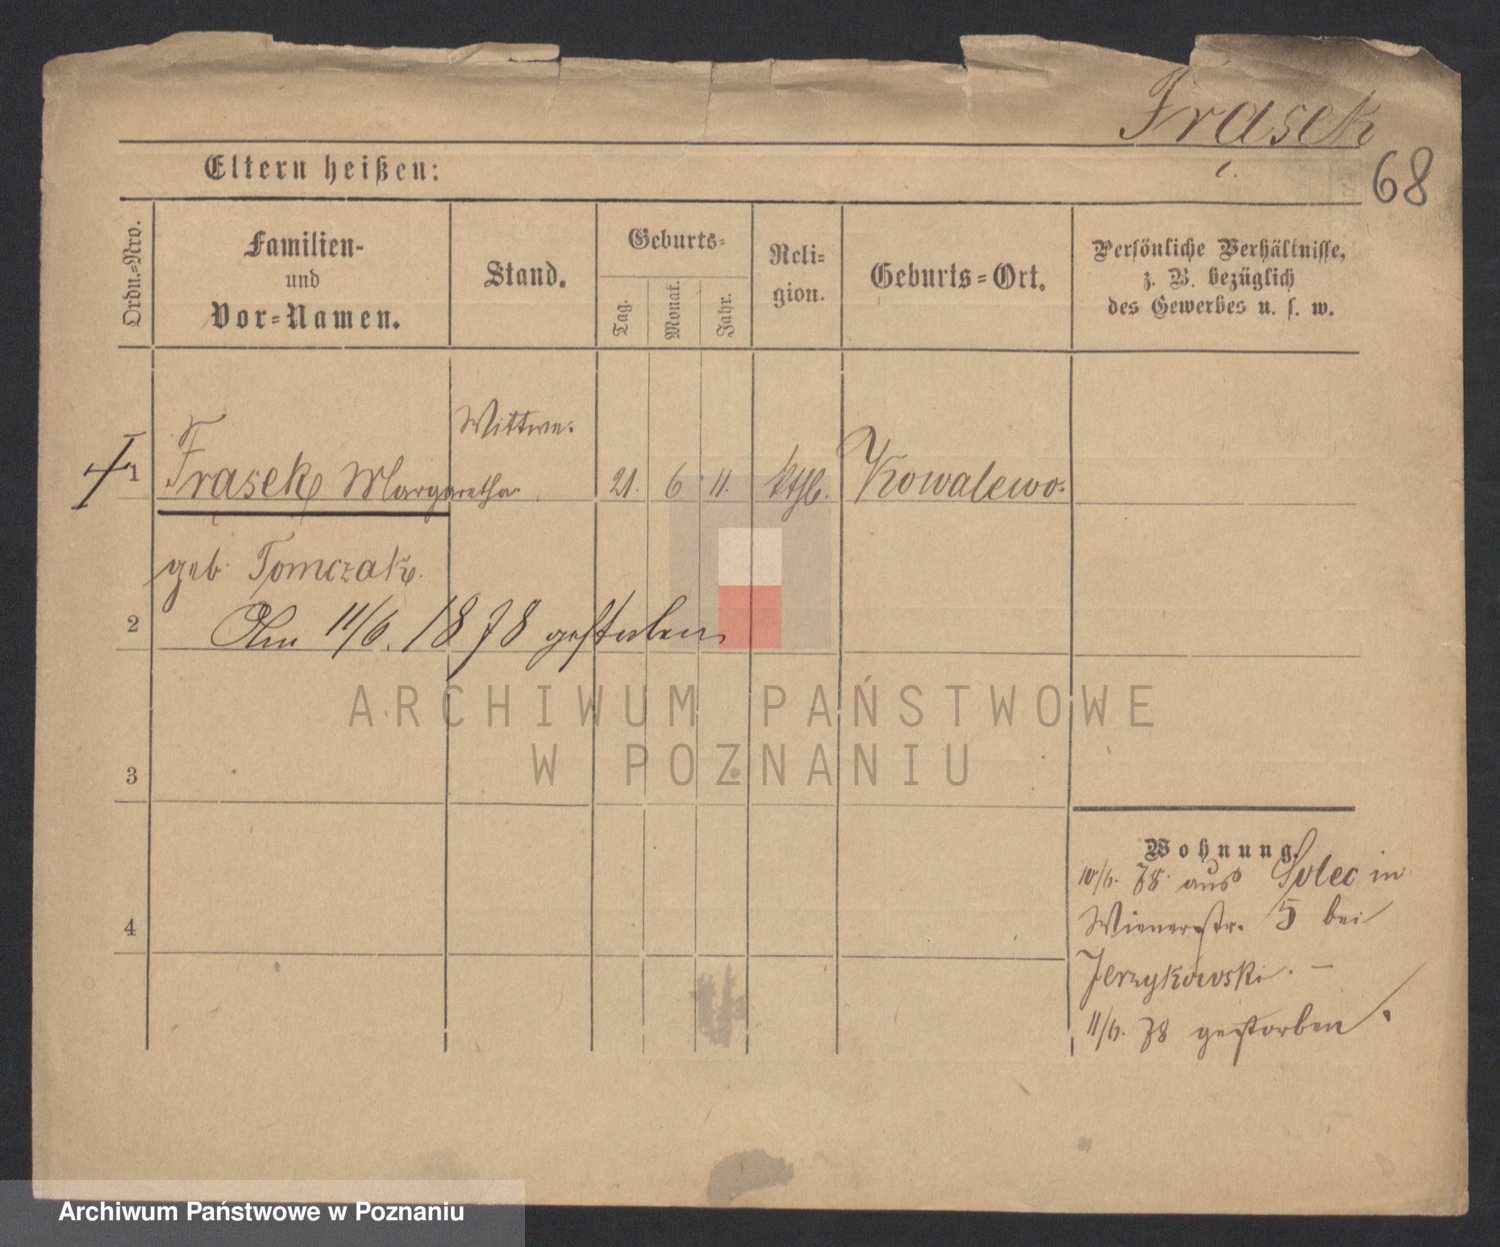 Frasek
68
Eltern heißen:
Ordn.-Nro.
Familien-
und
Vor-Namen.
Stand.
Geburts-
Tag.
Monat.
Jahr.
Reli-
gion.
Geburts-Ort.
Persönliche Verhältnisse,
z. B. bezüglich
des Gewerbes u. s. w.
Wittwe.
1 Frasek Margaretha 21. 6 11. kthl. Kowalewo.
geb. Tomczak.
2 Am 11/6. 1878 gestorben
ARCHIWUM PAŃSTWOWE
W POZNANIU
3
Wohnung.
10/6. 78. aus Solec in
4
Wienerstr. 5 bei
Jerzykowski. –
11/6. 78 gestorben.
Archiwum Państwowe w Poznaniu